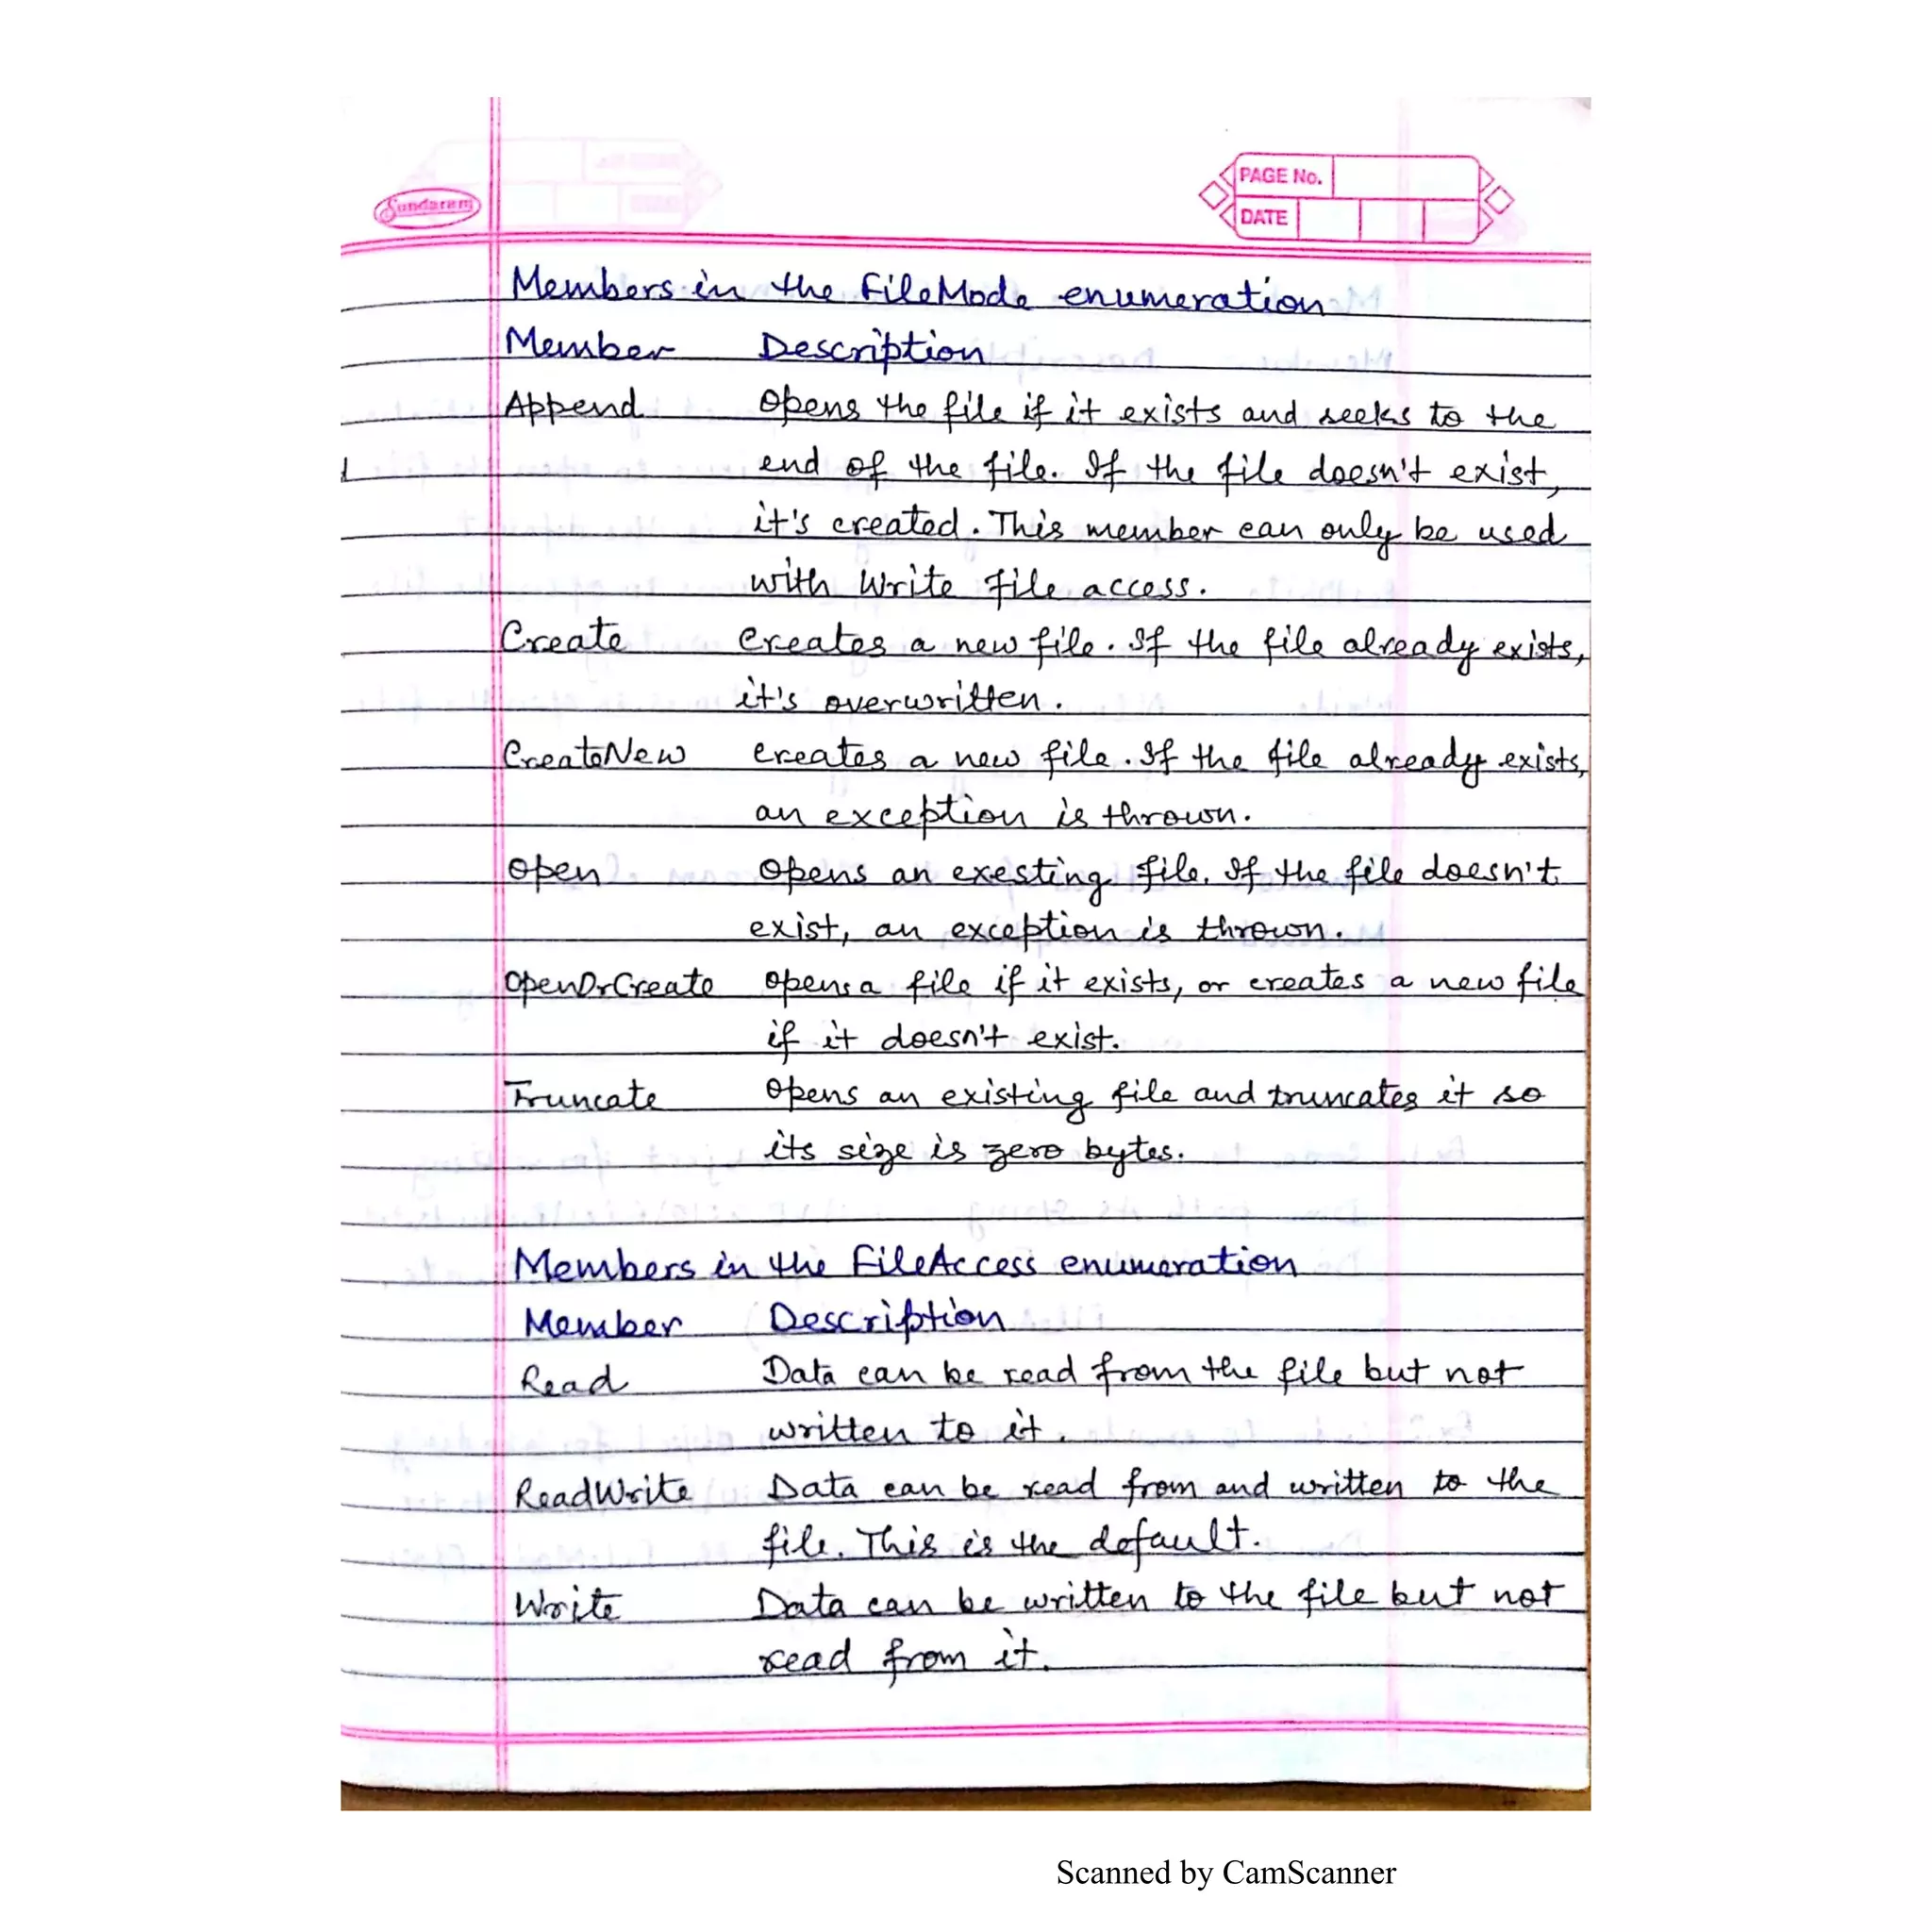 Sundaram
PAGE No.
DATE
Members in the FileMode enumeration
Member Description
Append Opens the file if it exists and seeks to the
end of the file. If the file doesn't exist,
it's created. This member can only be used
with Write file access.
Create Creates a new file. If the file already exists,
it's overwritten.
CreateNew Creates a new file. If the file already exists,
an exception is thrown.
Open Opens an exesting file. If the file doesn't
exist, an exception is thrown.
OpenOrCreate Opens a file if it exists, or creates a new file
if it doesn't exist.
Truncate Opens an existing file and truncates it so
its size is zero bytes.
Members in the FileAccess enumeration
Member Description
Read Data can be read from the file but not
written to it.
ReadWrite Data can be read from and written to the
file. This is the default.
Write Data can be written to the file but not
read from it.
Scanned by CamScanner